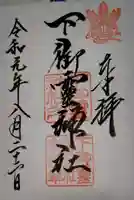 奉拝
下御霊神社
令和元年八月二十二日